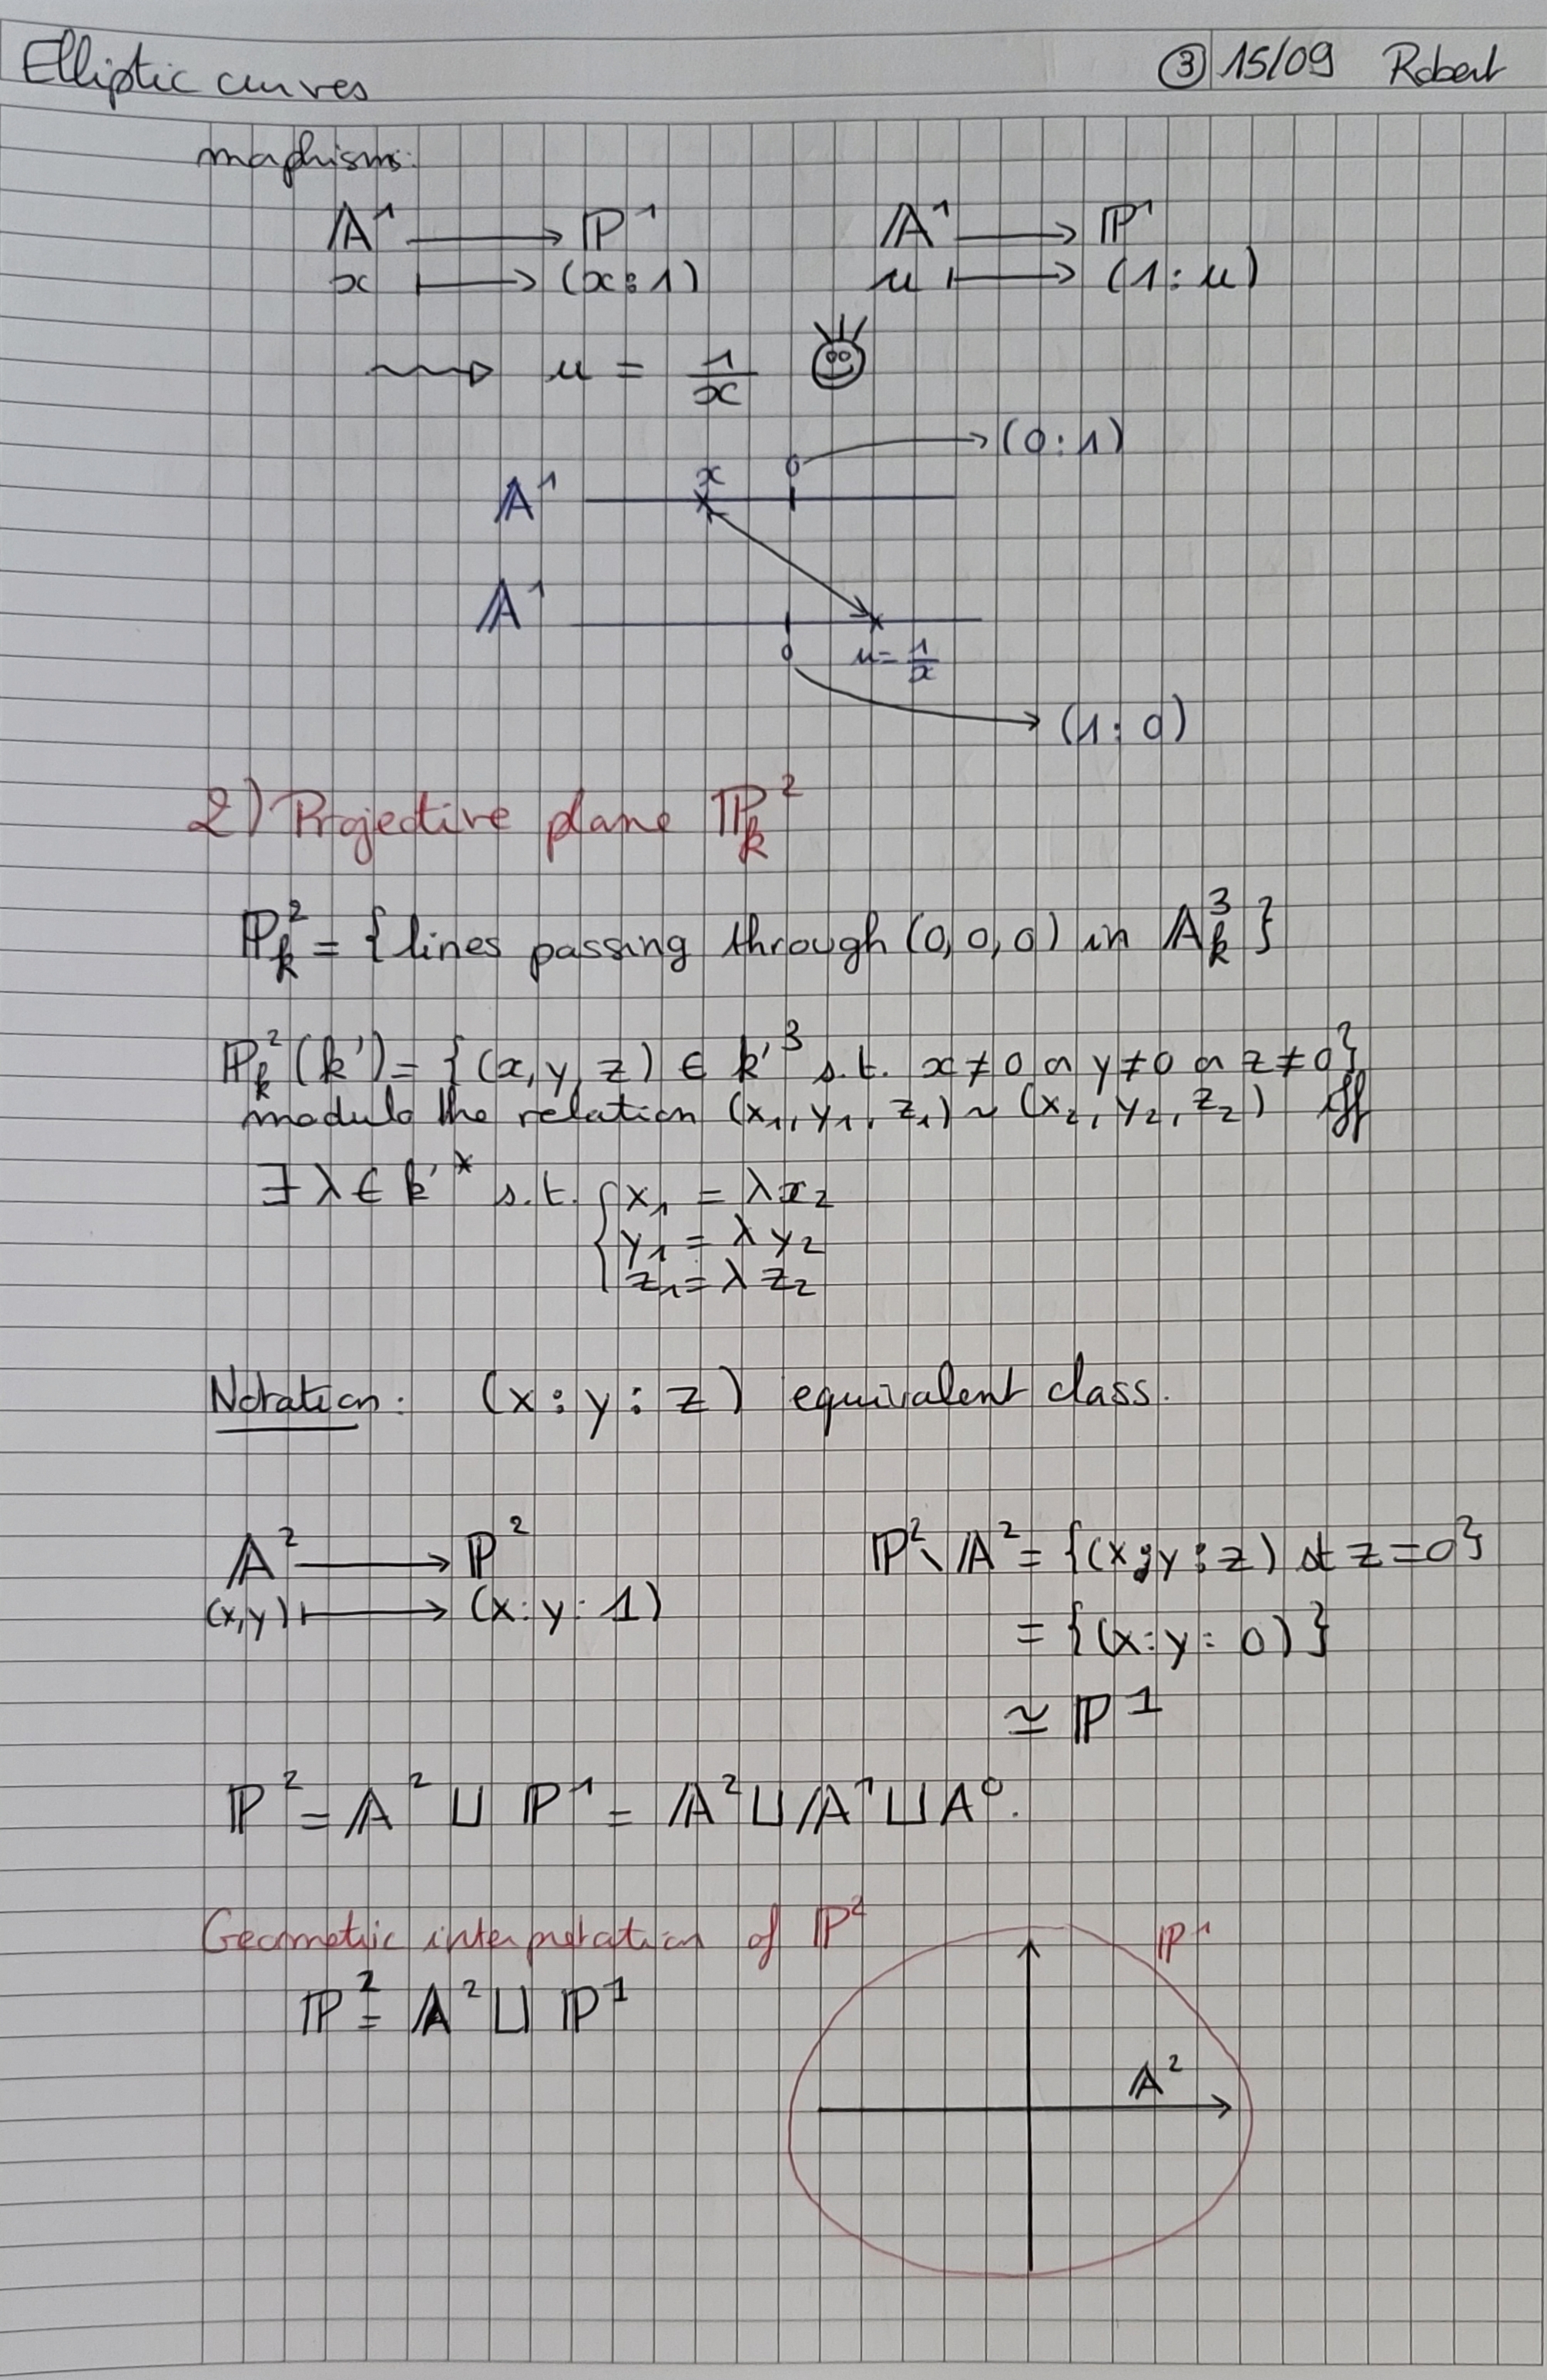 Elliptic curves ③ 15/09 Robert
morphisms:
𝔸¹ ⟶ ℙ¹ 𝔸¹ ⟶ ℙ¹
x ⟼ (x:1) u ⟼ (1:u)
⇝ u = 1/x
0 → (0:1)
𝔸¹ x
𝔸¹
0 u = 1/x
(1:0)
2) Projective plane ℙ²_k
ℙ²_k = {lines passing through (0,0,0) in 𝔸³_k}
ℙ²_k(k') = {(x,y,z) ∈ k'³ s.t. x≠0 or y≠0 or z≠0}
modulo the relation (x₁, y₁, z₁) ~ (x₂, y₂, z₂) iff
∃ λ ∈ k'* s.t. { x₁ = λx₂
y₁ = λy₂
z₁ = λz₂
Notation: (x:y:z) equivalent class.
𝔸² ⟶ ℙ² ℙ²∖𝔸² = {(x:y:z) st z=0}
(x,y) ⟼ (x:y:1) = {(x:y:0)}
≃ ℙ¹
ℙ² = 𝔸² ⊔ ℙ¹ = 𝔸² ⊔ 𝔸¹ ⊔ A⁰.
Geometric interpretation of ℙ² ℙ¹
ℙ² = 𝔸² ⊔ ℙ¹
𝔸²